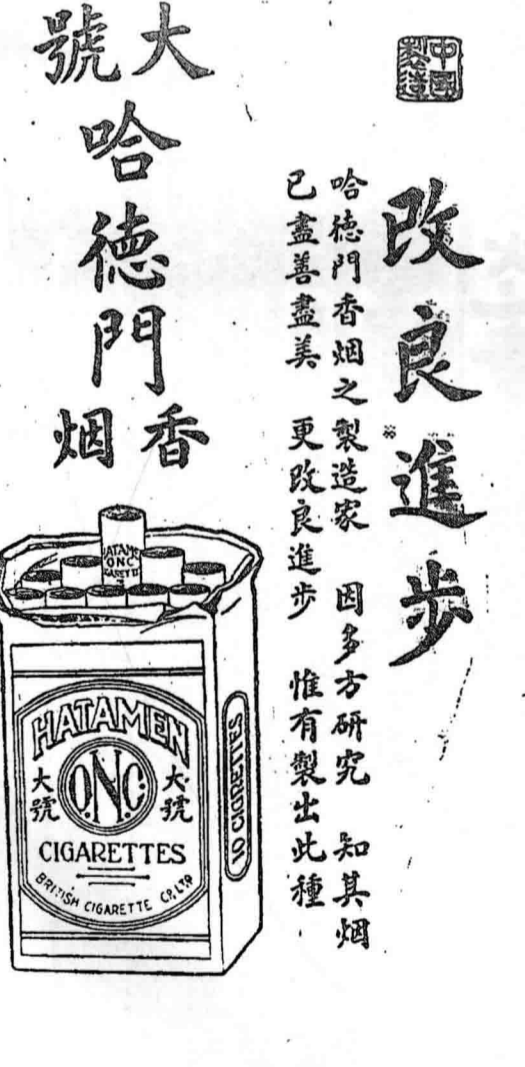 中國
製造
改良進步
哈德門香烟之製造家 因多方研究 知其烟
已盡善盡美 更改良進步 惟有製出此種
大號
哈德門
香烟
HATAM
ONC
GARETT
HATAMEN
大號
O.N.C.
大號
CIGARETTES
BRITISH CIGARETTE CO. LTD
10 CIGARETTES